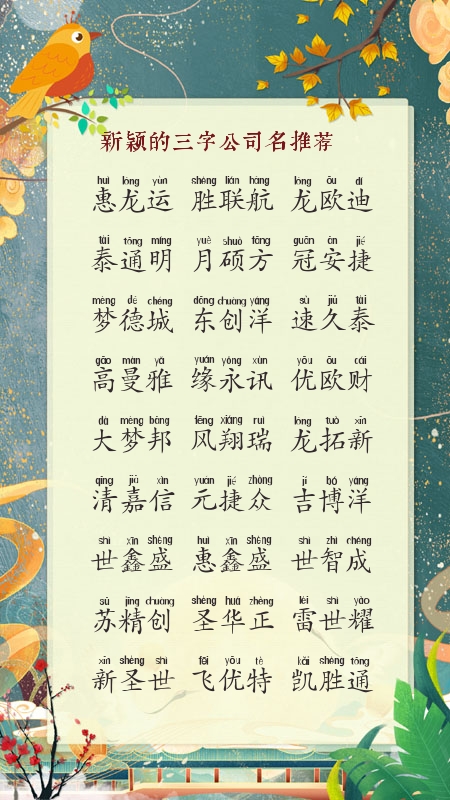 新颖的三字公司名推荐
huì lóng yùn shèng lián háng lóng ōu dí
惠龙运 胜联航 龙欧迪
tài tōng míng yuè shuò fāng guān ān jié
泰通明 月硕方 冠安捷
mèng dé chéng dōng chuàng yáng sù jiǔ tài
梦德城 东创洋 速久泰
gāo màn yǎ yuán yǒng xùn yōu ōu cái
高曼雅 缘永讯 优欧财
dà mèng bāng fēng xiáng ruì lóng tuò xīn
大梦邦 风翔瑞 龙拓新
qīng jiā xìn yuán jié zhòng jí bó yáng
清嘉信 元捷众 吉博洋
shì xīn shèng huì xīn shèng shì zhì chéng
世鑫盛 惠鑫盛 世智成
sū jīng chuàng shèng huá zhèng léi shì yào
苏精创 圣华正 雷世耀
xīn shèng shì fēi yōu tè kǎi shèng tōng
新圣世 飞优特 凯胜通